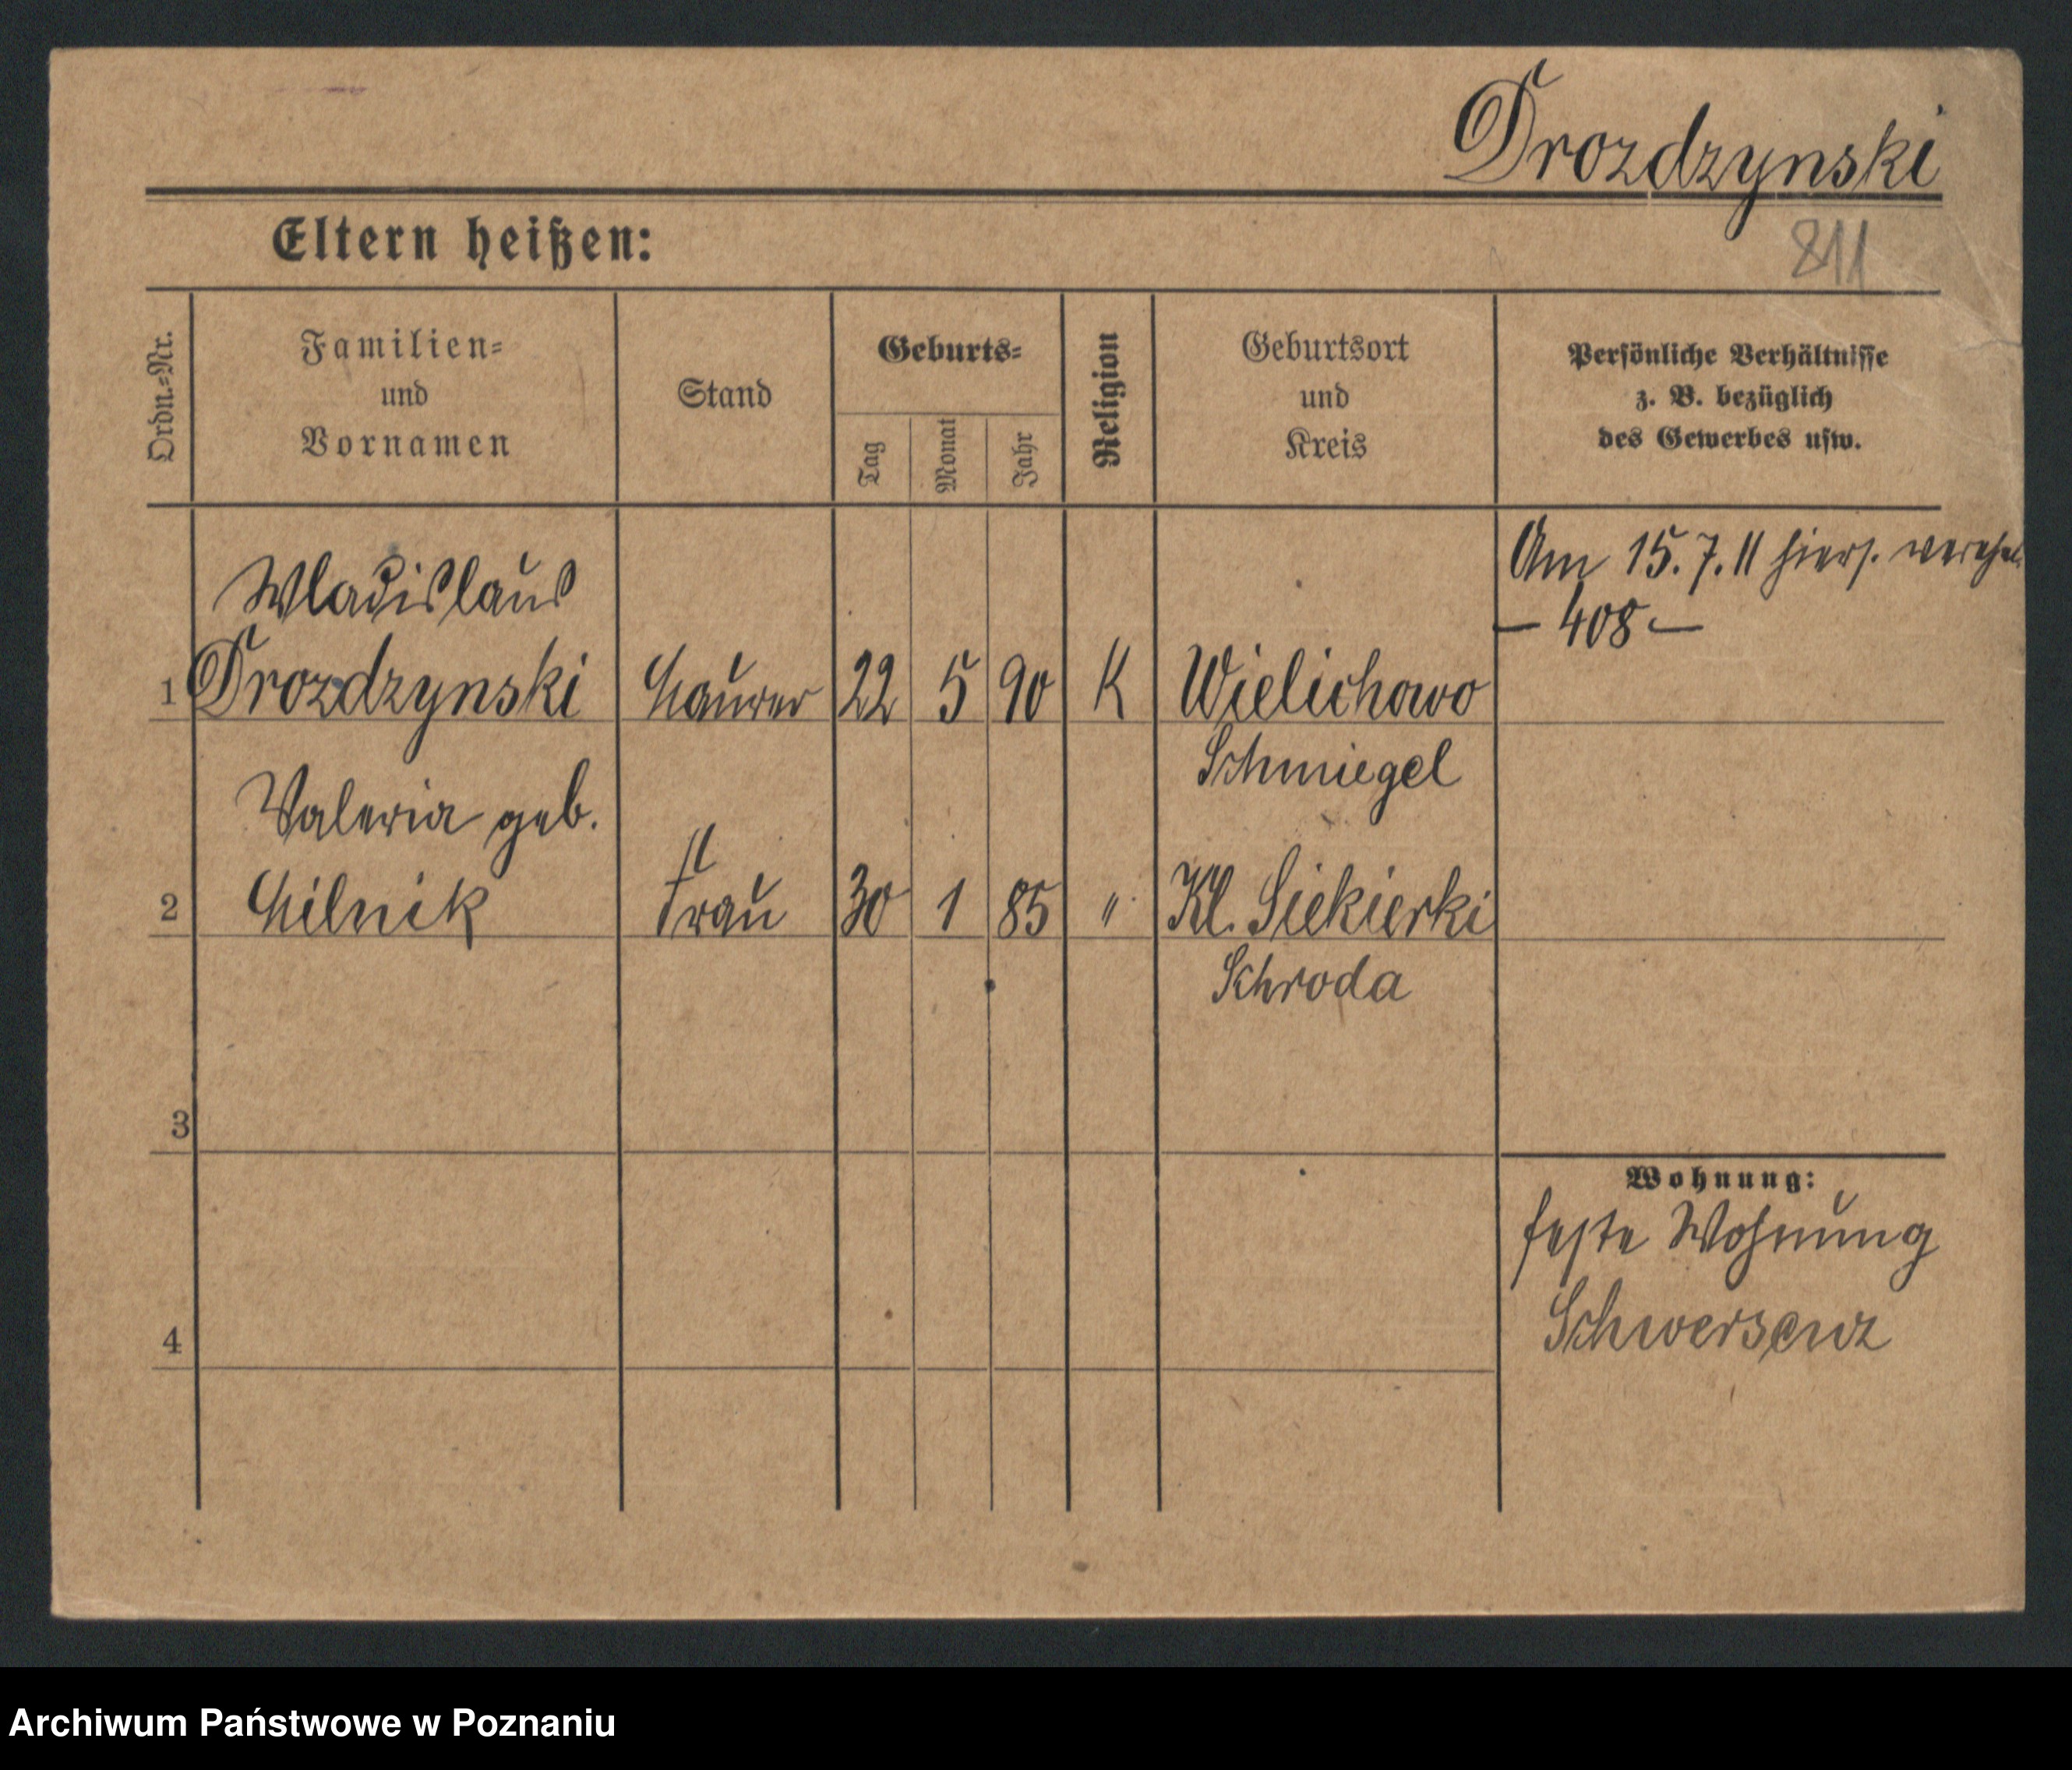 Drozdzynski
Eltern heißen:
811
Ordn.-Nr.
Familien-
und
Vornamen
Stand
Geburts-
Tag
Monat
Jahr
Religion
Geburtsort
und
Kreis
Persönliche Verhältnisse
z. B. bezüglich
des Gewerbes usw.
Am 15.7.11 hiers. verehel.
– 408 –
Wladislaus
1 Drozdzynski Maurer 22 5 90 K Wielichowo
Schmiegel
Valeria geb.
2 Milnik Frau 30 1 85 " Kl. Siekierki
Schroda
3
Wohnung:
feste Wohnung
Schwersenz
4
Archiwum Państwowe w Poznaniu